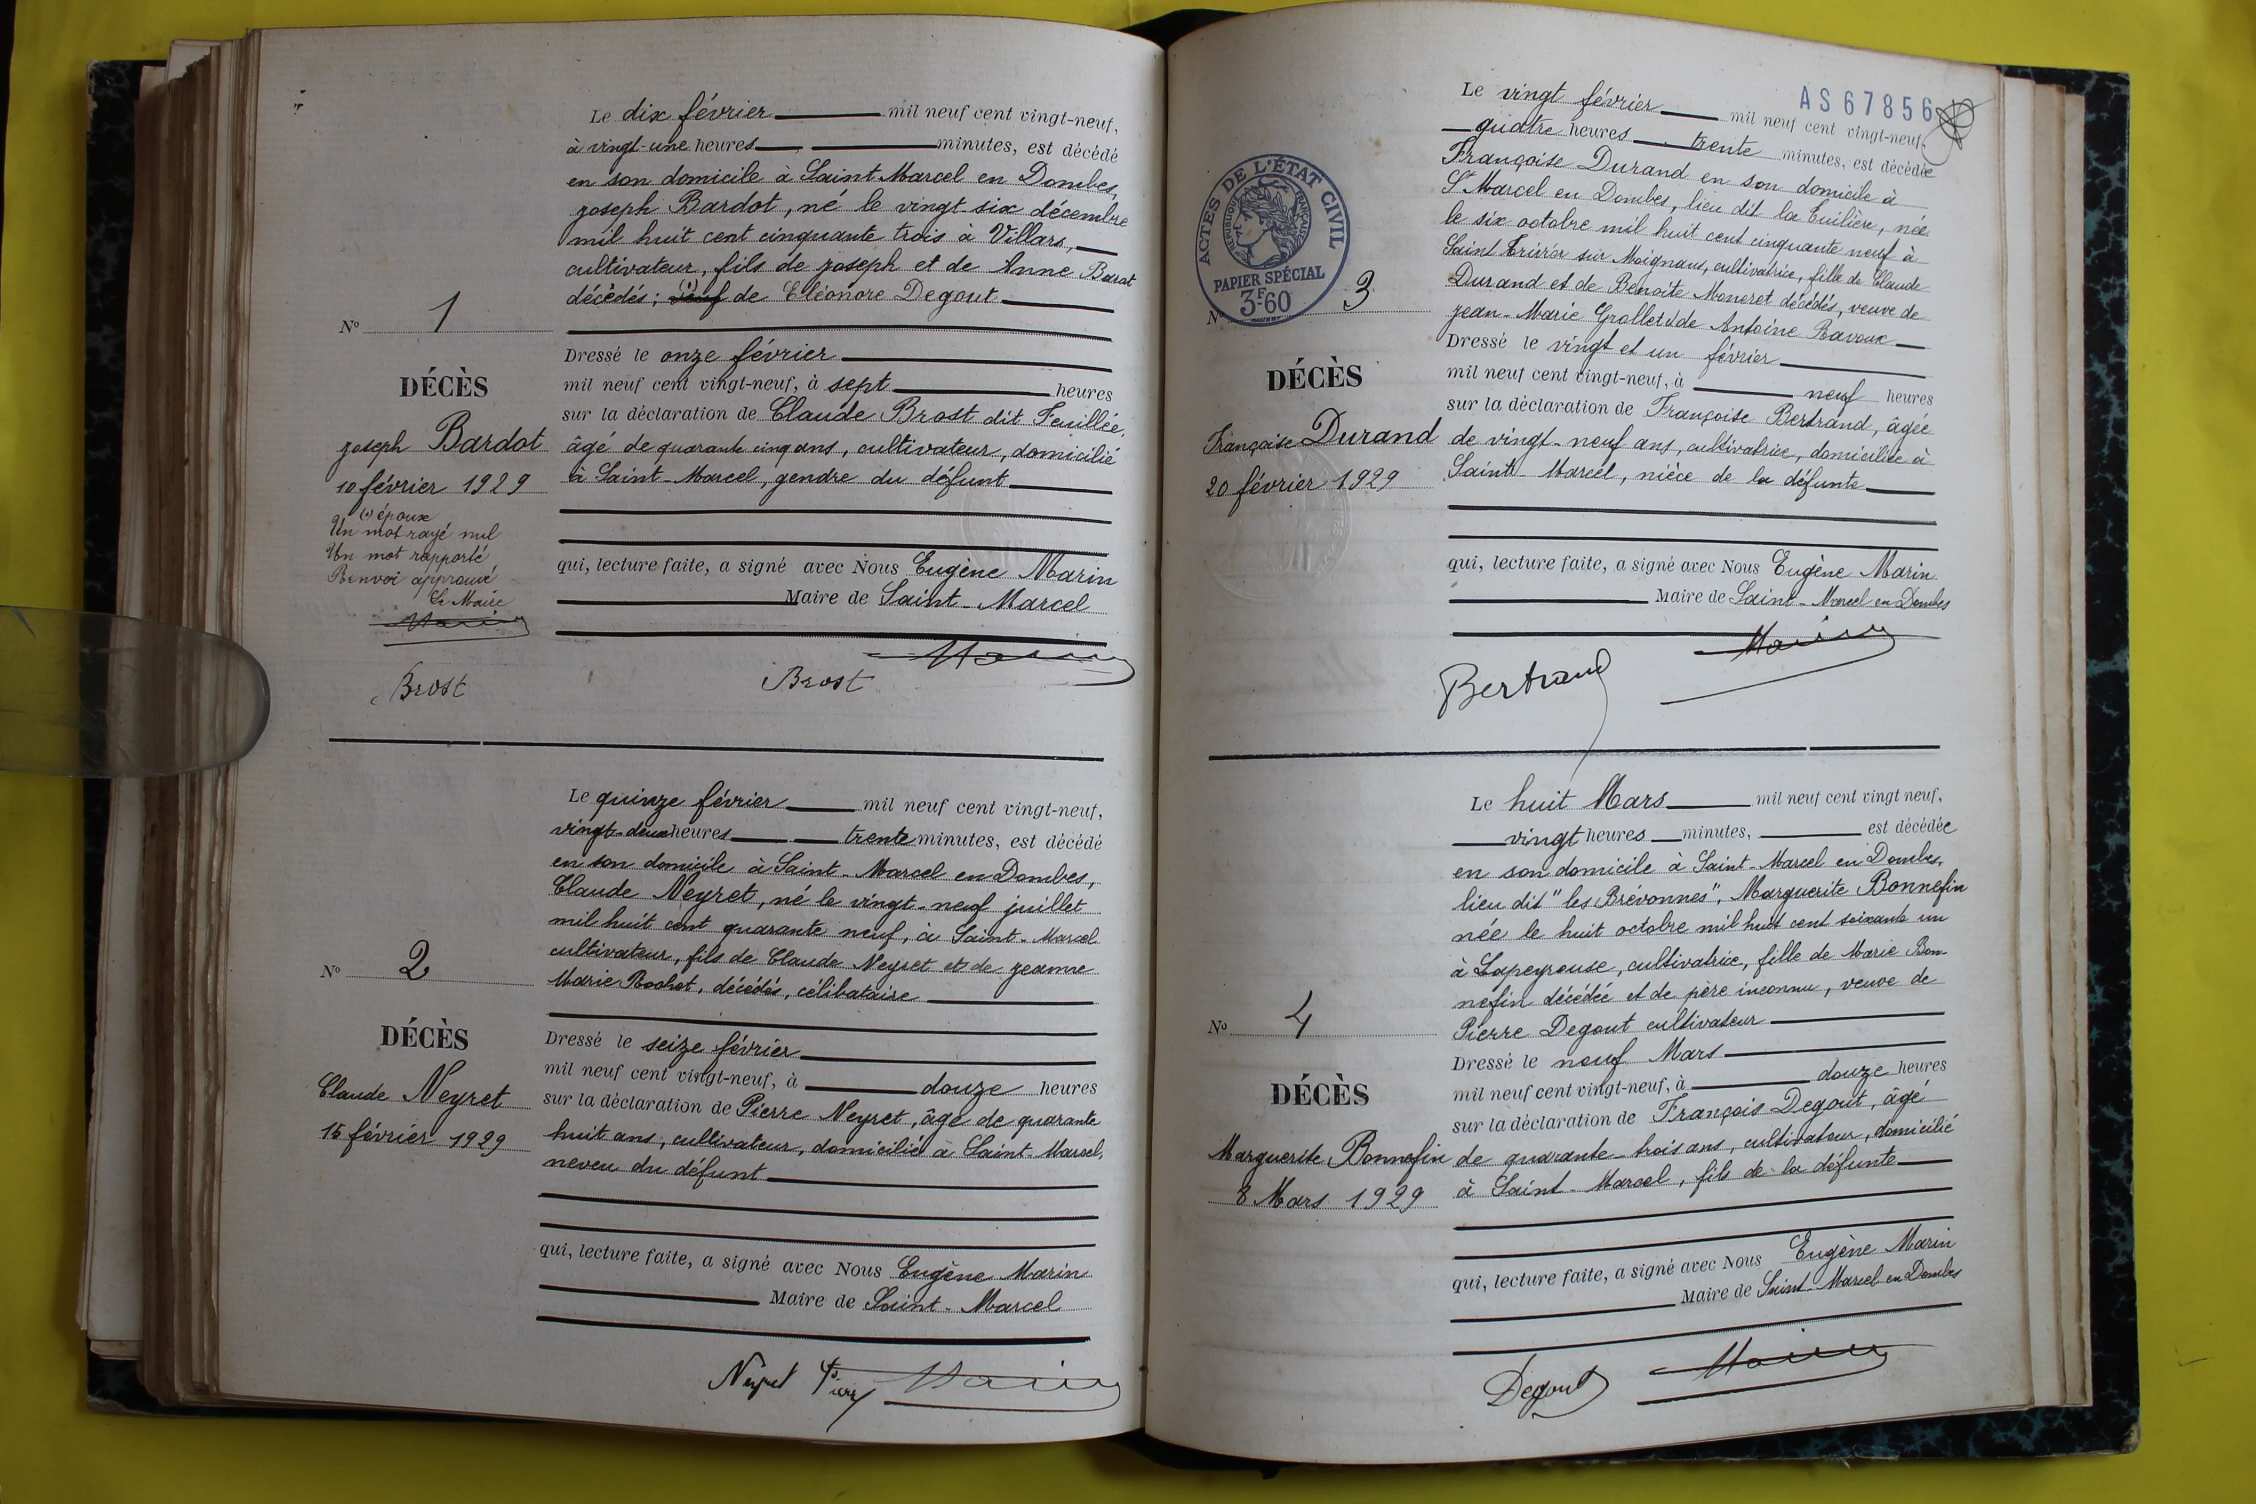 Le dix février mil neuf cent vingt-neuf,
à vingt-une heures minutes, est décédé
en son domicile à Saint Marcel en Dombes,
Joseph Bardot, né le vingt six décembre
mil huit cent cinquante trois à Villars,
cultivateur, fils de Joseph et de Anne Barat
décédés; veuf (1) de Eléonore Degout
Dressé le onze février
mil neuf cent vingt-neuf, à sept heures
sur la déclaration de Claude Brost dit Feuillée,
âgé de quarante cinq ans, cultivateur, domicilié
à Saint-Marcel, gendre du défunt
qui, lecture faite, a signé avec Nous Eugène Marin
Maire de Saint-Marcel
Marin
Brost
No 1
DÉCÈS
Joseph Bardot
10 février 1929
(1) époux
Un mot rayé nul
Un mot rapporté
Renvoi approuvé
Le Maire
Marin
Brost
Le quinze février mil neuf cent vingt-neuf,
vingt-deux heures trente minutes, est décédé
en son domicile à Saint-Marcel en Dombes,
Claude Neyret, né le vingt-neuf juillet
mil huit cent quarante neuf, à Saint-Marcel
cultivateur, fils de Claude Neyret et de Jeanne
Marie Rochet, décédés, célibataire
Dressé le seize février
mil neuf cent vingt-neuf, à douze heures
sur la déclaration de Pierre Neyret, âgé de quarante
huit ans, cultivateur, domicilié à Saint-Marcel,
neveu du défunt
qui, lecture faite, a signé avec Nous Eugène Marin
Maire de Saint-Marcel
Neyret Pierre Marin
No 2
DÉCÈS
Claude Neyret
15 février 1929
AS67856
Le vingt février mil neuf cent vingt-neuf,
quatre heures trente minutes, est décédée
Françoise Durand en son domicile à
St Marcel en Dombes, lieu dit la Tuilière, née
le six octobre mil huit cent cinquante neuf à
Saint Trivier sur Moignans, cultivatrice, fille de Claude
Durand et de Benoîte Moneret décédés, veuve de
Jean-Marie Grollet & de Antoine Ravoux
Dressé le vingt et un février
mil neuf cent vingt-neuf, à neuf heures
sur la déclaration de Françoise Bertrand, âgée
de vingt-neuf ans, cultivatrice, domiciliée à
Saint Marcel, nièce de la défunte
qui, lecture faite, a signé avec Nous Eugène Marin
Maire de Saint-Marcel en Dombes
Marin
Bertrand
ACTES DE L'ÉTAT CIVIL
RÉPUBLIQUE FRANÇAISE
PAPIER SPÉCIAL
3F60
No 3
DÉCÈS
Françoise Durand
20 février 1929
Le huit Mars mil neuf cent vingt neuf,
vingt heures minutes, est décédée
en son domicile à Saint-Marcel en Dombes,
lieu dit "les Brévonnes", Marguerite Bonnefin
née le huit octobre mil huit cent soixante un
à Lapeyrouse, cultivatrice, fille de Marie Bon-
nefin décédée et de père inconnu, veuve de
Pierre Degout cultivateur
Dressé le neuf Mars
mil neuf cent vingt-neuf, à douze heures
sur la déclaration de François Degout, âgé
de quarante-trois ans, cultivateur, domicilié
à Saint-Marcel, fils de la défunte
qui, lecture faite, a signé avec Nous Eugène Marin
Maire de Saint-Marcel en Dombes
Degout Marin
No 4
DÉCÈS
Marguerite Bonnefin
8 Mars 1929